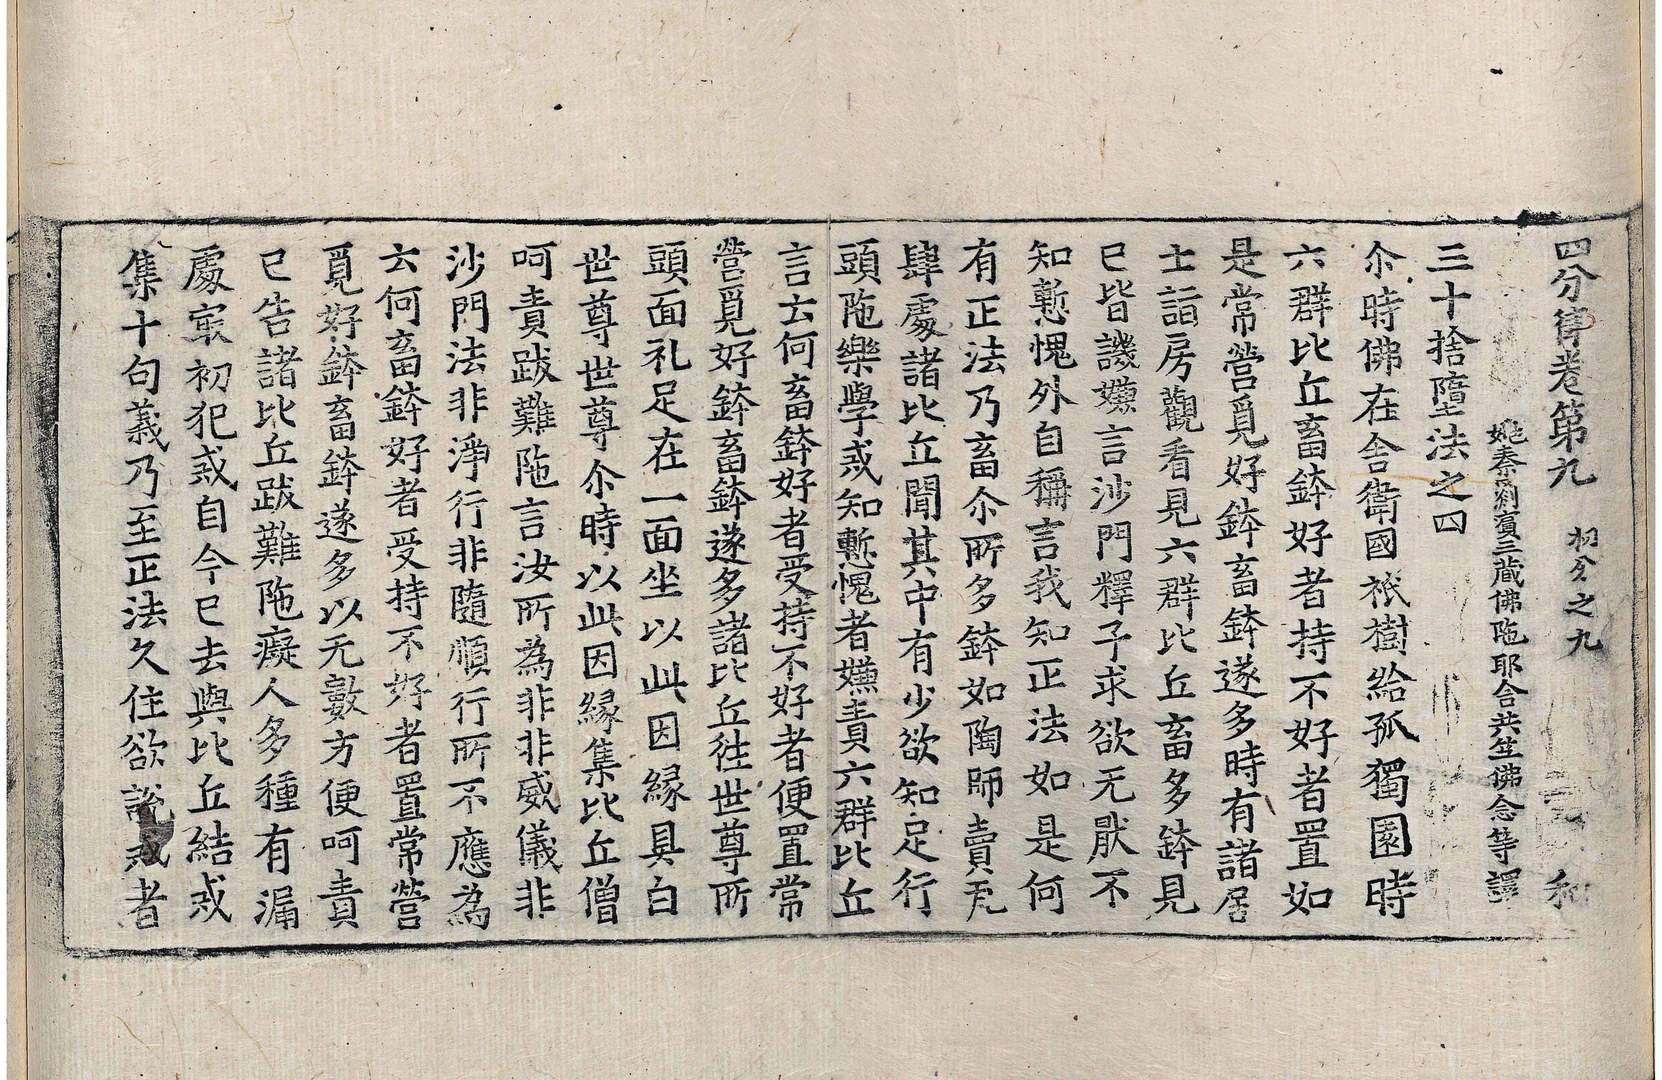 四分律卷第九 初分之九 和
姚秦罽賔三藏佛陁耶舍共笁佛念等譯
三十捨墮法之四
尒時佛在舍衛國祇樹給孤獨園時
六群比丘畜鉢好者持不好者置如
是常營覓好鉢畜鉢遂多時有諸居
士詣房觀看見六群比丘畜多鉢見
已皆譏嫌言沙門釋子求欲无猒不
知慙愧外自稱言我知正法如是何
有正法乃畜尒所多鉢如陶師賣瓦
肆處諸比丘聞其中有少欲知足行
頭陁樂學戒知慙愧者嫌責六群比丘
言云何畜鉢好者受持不好者便置常
營覓好鉢畜鉢遂多諸比丘徃世尊所
頭面礼足在一面坐以此因縁具白
世尊世尊尒時以此因縁集比丘僧
呵責跋難陁言汝所為非非威儀非
沙門法非淨行非隨順行所不應為
云何畜鉢好者受持不好者置常營
覓好鉢畜鉢遂多以无數方便呵責
已告諸比丘跋難陁癡人多種有漏
處㝡初犯戒自今已去與比丘結戒
集十句義乃至正法久住欲說戒者